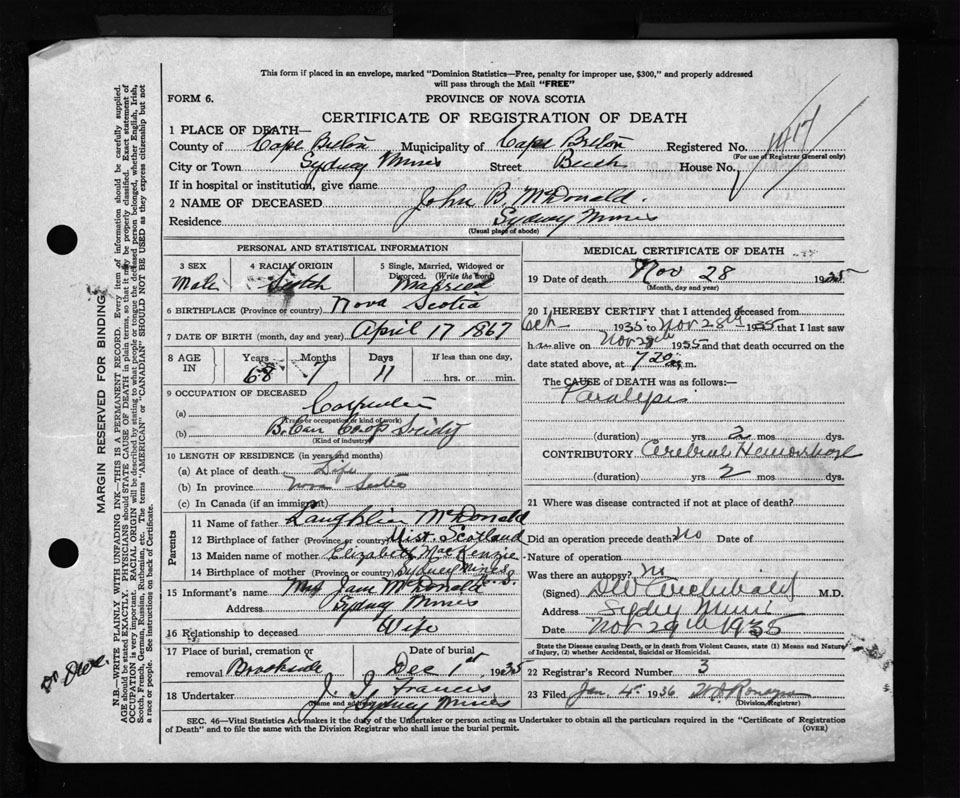 This form if placed in an envelope, marked "Dominion Statistics—Free, penalty for improper use, $300," and properly addressed
will pass through the Mail "FREE"
FORM 6.
PROVINCE OF NOVA SCOTIA
CERTIFICATE OF REGISTRATION OF DEATH
1 PLACE OF DEATH—
County of Cape Breton Municipality of Cape Breton Registered No. 1417
(For use of Registrar General only)
City or Town Sydney Mines Street Beech House No.
If in hospital or institution, give name
2 NAME OF DECEASED John B. McDonald.
Residence Sydney Mines
(Usual place of abode)
PERSONAL AND STATISTICAL INFORMATION
3 SEX 4 RACIAL ORIGIN 5 Single, Married, Widowed or Divorced. (Write the word)
Male Scotch Married
6 BIRTHPLACE (Province or country) Nova Scotia
7 DATE OF BIRTH (month, day and year) April 17 1867
8 AGE IN Years Months Days If less than one day,
68 7 11 hrs. or min.
9 OCCUPATION OF DECEASED
(a) Carpenter
(Trade occupation or kind of work)
(b) B. Can Co-op
(Kind of industry)
10 LENGTH OF RESIDENCE (in years and months)
(a) At place of death Life
(b) In province Nova Scotia
(c) In Canada (if an immigrant)
Parents
11 Name of father Laughlin McDonald
12 Birthplace of father (Province or country) Uist Scotland
13 Maiden name of mother Elizabeth MacKenzie
14 Birthplace of mother (Province or country) Sydney Mines N.S.
15 Informant's name Mrs Jane McDonald
Address Sydney Mines
16 Relationship to deceased Wife
17 Place of burial, cremation or removal Brookside
Date of burial Dec 1st, 1935
18 Undertaker J. J. Francis
(Name and address)
Sydney Mines
MEDICAL CERTIFICATE OF DEATH
19 Date of death Nov 28 1935
(Month, day and year)
20 I HEREBY CERTIFY that I attended deceased from
Oct 1935 to Nov 28th 1935 that I last saw
h im alive on Nov 28th 1935 and that death occurred on the
date stated above, at 7 20 m.
The CAUSE of DEATH was as follows:—
Paralysis
(duration) yrs 2 mos dys.
CONTRIBUTORY Cerebral Hemorrhage
(duration) 2 yrs mos dys.
21 Where was disease contracted if not at place of death?
Did an operation precede death? no Date of
Nature of operation
Was there an autopsy? no
(Signed) DW Archibald M.D.
Address Sydney Mines
Date Nov 29th 1935
State the Disease causing Death, or in death from Violent Causes, state (1) Means and Nature
of Injury, (2) whether Accidental, Suicidal or Homicidal.
22 Registrar's Record Number 3
23 Filed Jan. 4th 1936
(Division Registrar)
SEC. 46—Vital Statistics Act makes it the duty of the Undertaker or person acting as Undertaker to obtain all the particulars required in the "Certificate of Registration
of Death" and to file the same with the Division Registrar who shall issue the burial permit.
(OVER)
MARGIN RESERVED FOR BINDING.
N.B.—WRITE PLAINLY WITH UNFADING INK—THIS IS A PERMANENT RECORD. Every item of information should be carefully supplied.
AGE should be stated EXACTLY. PHYSICIANS should STATE CAUSE OF DEATH in plain terms, so that it may be properly classified. Exact statement of
OCCUPATION is very important. RACIAL ORIGIN will be described by stating to what people or tongue the deceased person belonged, whether English, Irish,
Scotch, French, German, Russian, Ruthenian, etc. The terms "AMERICAN" or "CANADIAN" SHOULD NOT BE USED as they express citizenship but not
a race or people. See instructions on back of Certificate.